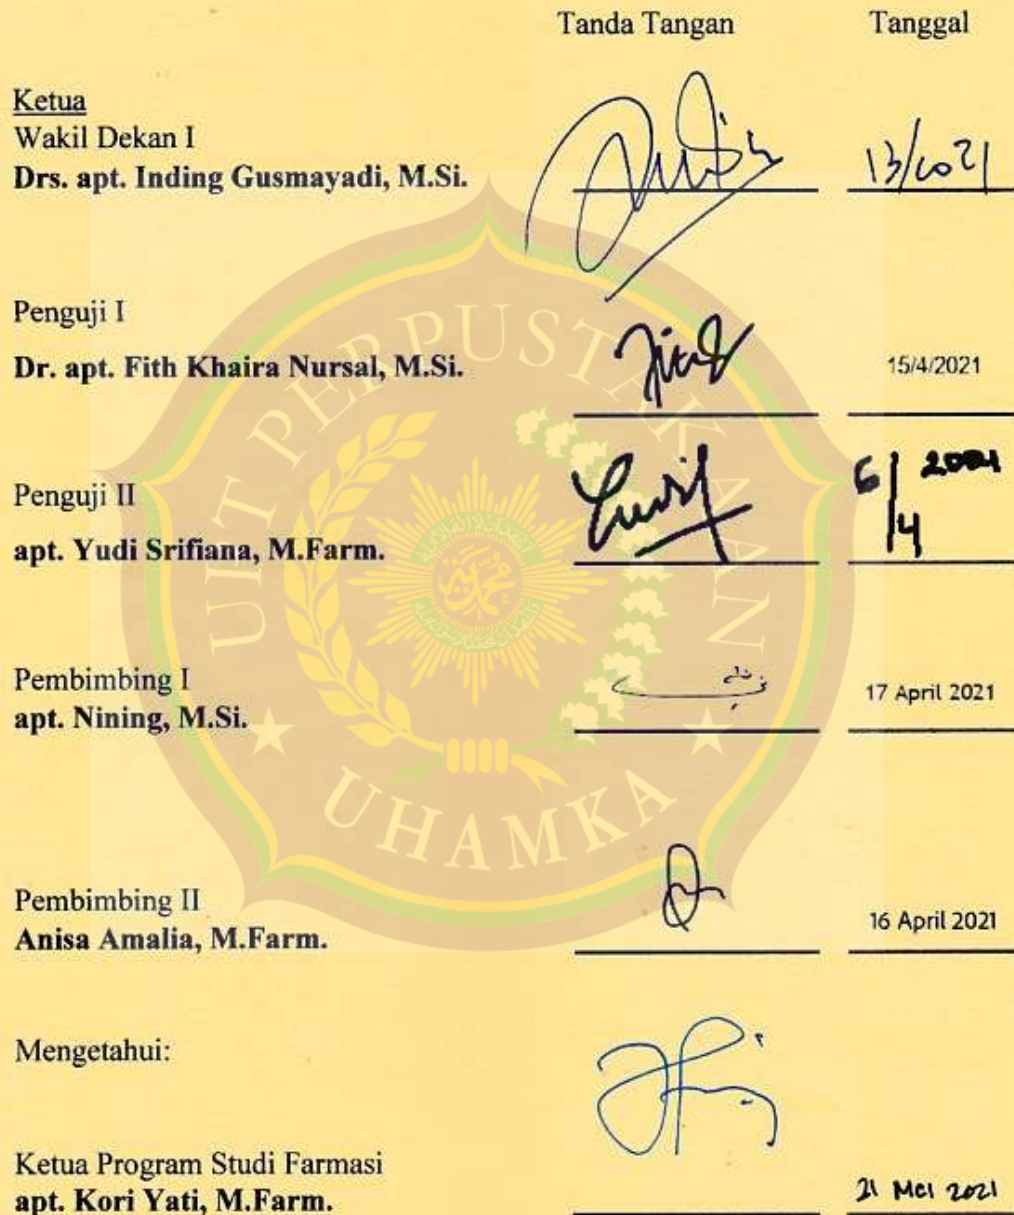 Tanda Tangan Tanggal
Ketua
Wakil Dekan I
Drs. apt. Inding Gusmayadi, M.Si.
Penguji I
Dr. apt. Fith Khaira Nursal, M.Si. 15/4/2021
Penguji II 6/4 2021
apt. Yudi Srifiana, M.Farm.
Pembimbing I
apt. Nining, M.Si. 17 April 2021
Pembimbing II
Anisa Amalia, M.Farm. 16 April 2021
Mengetahui:
Ketua Program Studi Farmasi
apt. Kori Yati, M.Farm. 21 Mei 2021
UIT PERPUSTAKAAN
UHAMKA
محمدية